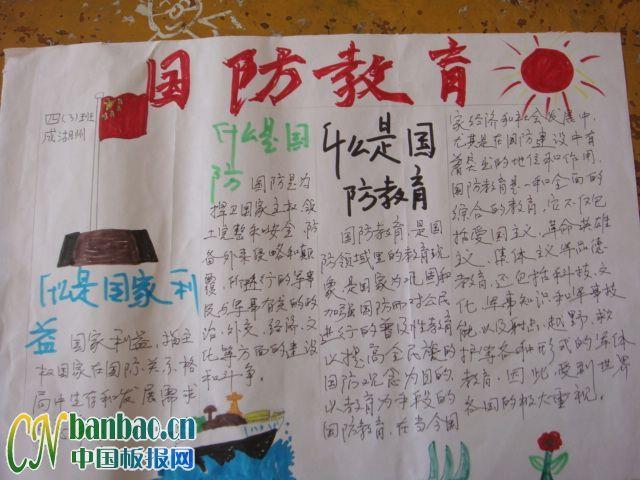 国防教育
四(3)班
成湖州
什么是国家利
益
国家利益,指主
权国家在国际关系格
局中生存和发展需求
什么是国
防
国防是为
捍卫国家主权、领
土完整和安全,防
备外来侵略和颠
覆,所进行的军事
及与军事有关的政
治、外交、经济、文
化等方面的建设
和斗争。
什么是国
防教育
国防教育,是国
防领域里的教育现
象,是国家为巩固和
加强国防而对公民
进行的普及性教育
以提高全民族的
国防观念为目的,
以教育为手段的
国防教育,在当今国
家经济和社会发展中,
尤其是在国防建设中有
着突出的地位和作用,
国防教育是一种全面的
综合的教育,它不仅包
括爱国主义、革命英雄
主义、集体主义、军品德
教育,还包括科技、文
化、军事知识和军事技
能,以及射击、越野、救
护等各种形式的军体
教育,因此,受到世界
各国的极大重视。
CN banbao.cn
中国板报网